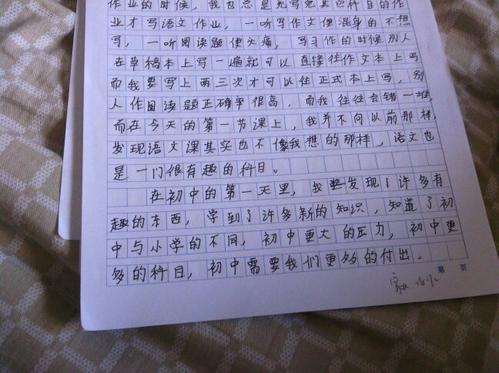 作业的时候，我也总是先写完其它科目的作
业才写语文作业，一听写作文便浑身的不想
写，一听阅读题便头痛，写习作的时候别人
在草稿本上写一遍就可以直接往作文本上写
而我要写上两三次才可以往正式本上写，别
人作阅读题正确率很高，而我往往会错一堆
而在今天的第一节课上，我并不向以前那样，
发现语文课其实也不像我想的那样，语文也
是一门很有趣的科目。
在初中的第一天里，我发现了许多有
趣的东西，学到了许多新的知识，知道了初
中与小学的不同，初中更大的压力，初中更
多的科目，初中需要我们更多的付出。
第 页